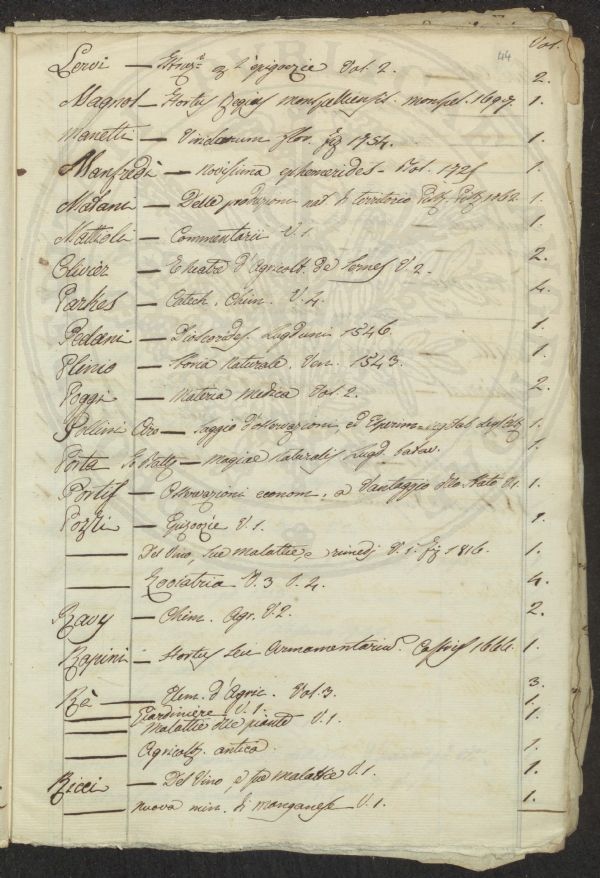 44 Vol.
Leroi — p l'epizoozie Vol. 2. 2.
Magnol — Hortus Regius monspeliensis. monspel. 1697. 1.
Manetti — Viridarium flor. fig 1751. 1.
Manfredi — novissima ephemerides - 1725 1.
Matani — Delle produzioni nat. di territorio Pist. 1762. 1.
Mattioli — Commentarii V. 1. 1.
Olivier — Theatre d'Agricolt. de Serres V. 2. 2.
Parkes — Catech. Chim. V. 4. 4.
Pedani — Dioscorides. Lugduni 1546 1.
Plinio — Storia Naturale. Ven. 1543. 1.
Poggi — Materia medica Vol. 2. 2.
Pollini Ciro — Saggio d'osservazioni, ed Esperim. 1.
Porta Gio Batta — Magiae Naturalis Lugd. batav. 1.
Portis — Osservazioni econom. a vantaggio dello Stato V. 1. 1.
Pozzi — Epizoozie V. 1. 1.
— Del Vino, sue malattie, e rimedj V. 1. fig 1816. 1.
— Zooiatria V. 3 V. 4. 4.
Davy — Chim. Agr. V. 2. 2.
Rapini — Hortus seu Armamentariu. 1666. 1.
Rè — Elem. d'Agric. Vol. 3. 3.
— Giardiniere V. 1. 1.
— Malattie delle piante V. 1. 1.
— Agricolt. antica. 1.
Ricci — Del Vino, e sue malattie V. 1. 1.
— nuova min. di manganese V. 1. 1.